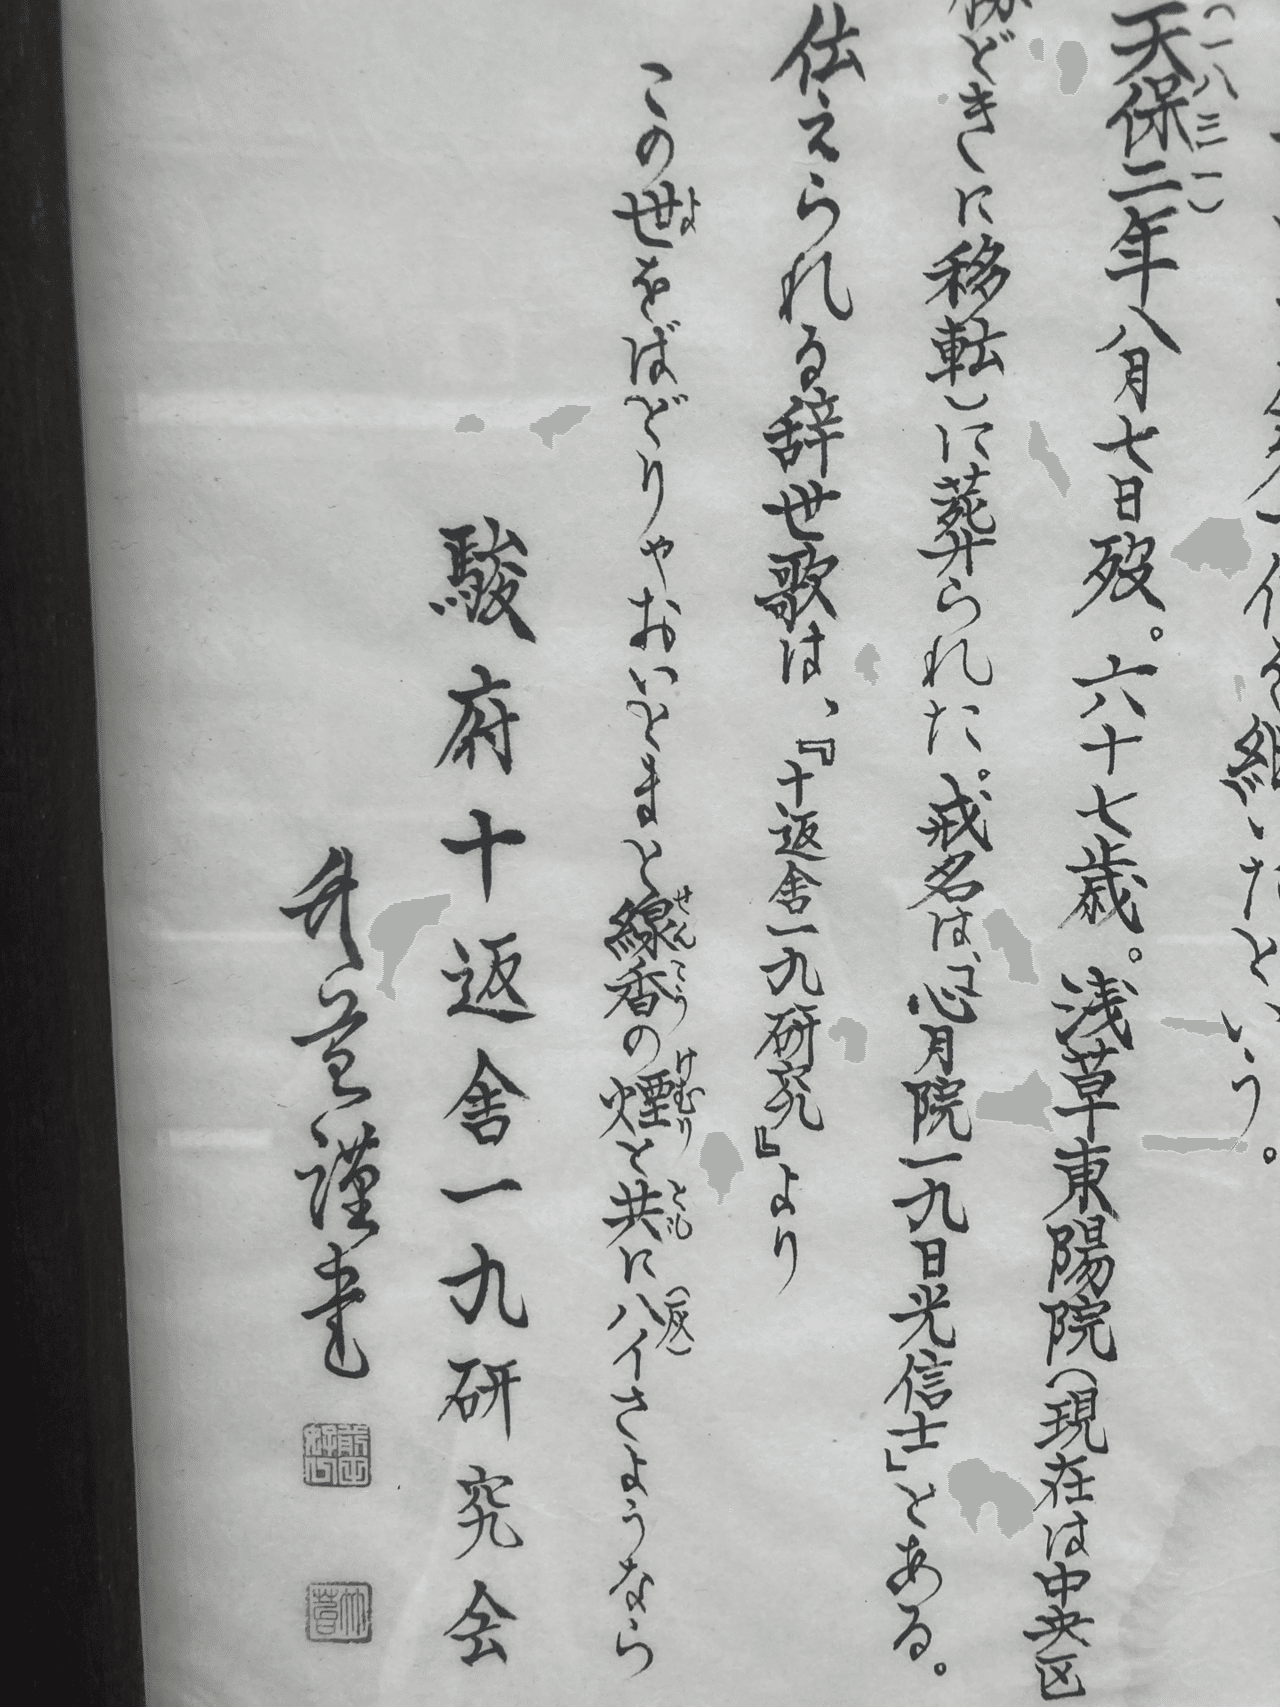 継いだという。
天保二年(一八三一)八月七日歿。六十七歳。浅草東陽院(現在は中央区
どきに移転)に葬られた。戒名は、「心月院一九日光信士」とある。
伝えられる辞世歌は、『十返舎一九研究』より
この世をばどりゃおいとまと線香の煙と共にハイさようなら
よ
せんこう
けむり
とも
(灰)
駿府十返舎一九研究会
謹書